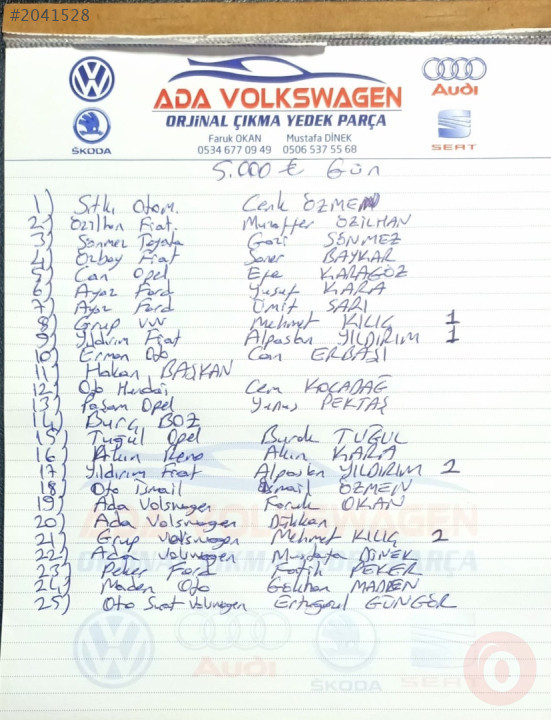 #2041528
ADA VOLKSWAGEN
ORJİNAL ÇIKMA YEDEK PARÇA
Faruk OKAN Mustafa DİNEK
0534 677 09 49 0506 537 55 68
ŠKODA
Audi
SEAT
5.000 € Gün
1) Sıtkı Otom. Cenk ÖZMEN
2) Özilhan Fiat. Muzaffer ÖZİLHAN
3) Sönmez Toyota Gazi SÖNMEZ
4) Özbay Fiat Soner BAYKAR
5) Can Opel Efe KARAGÖZ
6) Ayaz Ford Yusuf KARA
7) Ayaz Ford Ümit SARI
8) Grup VW Mehmet KILIÇ 1
9) Yıldırım Fiat Alpaslan YILDIRIM 1
10) Erman Oto Can ERBAŞI
11) Hakan BAŞKAN
12) Oto Hundai Cem KOCADAĞ
13) Paşam Opel Yunus PEKTAŞ
14) Burç BOZ
15) Tuğul Opel Burak TUĞUL
16) Akın Reno Akın KARA
17) Yıldırım Fiat Alpaslan YILDIRIM 2
18) Oto İsmail İsmail ÖZMEN
19) Ada Volsvagen Faruk OKAN
20) Ada Volsvagen Dükkan
21) Grup Volsvagen Mehmet KILIÇ 2
22) Ada Volsvagen Mustafa DİNEK
23) Peker Ford Fatih PEKER
24) Maden Oto Gökhan MADEN
25) Oto Suat Volsvagen Ertuğrul GÜNGÖR
ADA VOLKSWAGEN
ORJİNAL ÇIKMA YEDEK PARÇA
Audi
ŠKODA
SEAT